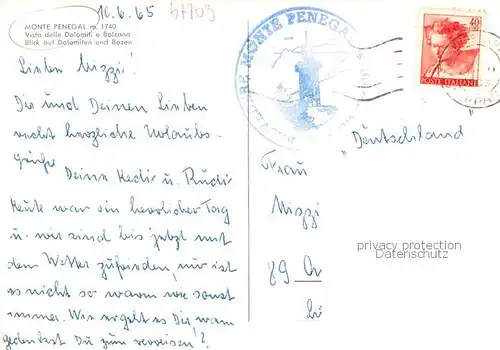 10.6.65
51703
MONTE PENEGAL m. 1740
Vista delle Dolomiti e Bolzano
Blick auf Dolomiten und Bozen
Liebe Mizzi!
Dir und Deinen Lieben
recht herzliche Urlaubs-
grüße Deine Hedi u. Rudi
Heute war ein herrlicher Tag
u. wir sind bis jetzt mit
dem Wetter zufrieden, nur ist
es nicht so warm wie sonst
immer. Wie ergeht es Dir wann
gedenkst Du zum verreisen?
MONTE PENEGAL
40
POSTE ITALIANE
Deutschland
Frau
Mizzi
89
privacy protection
Datenschutz